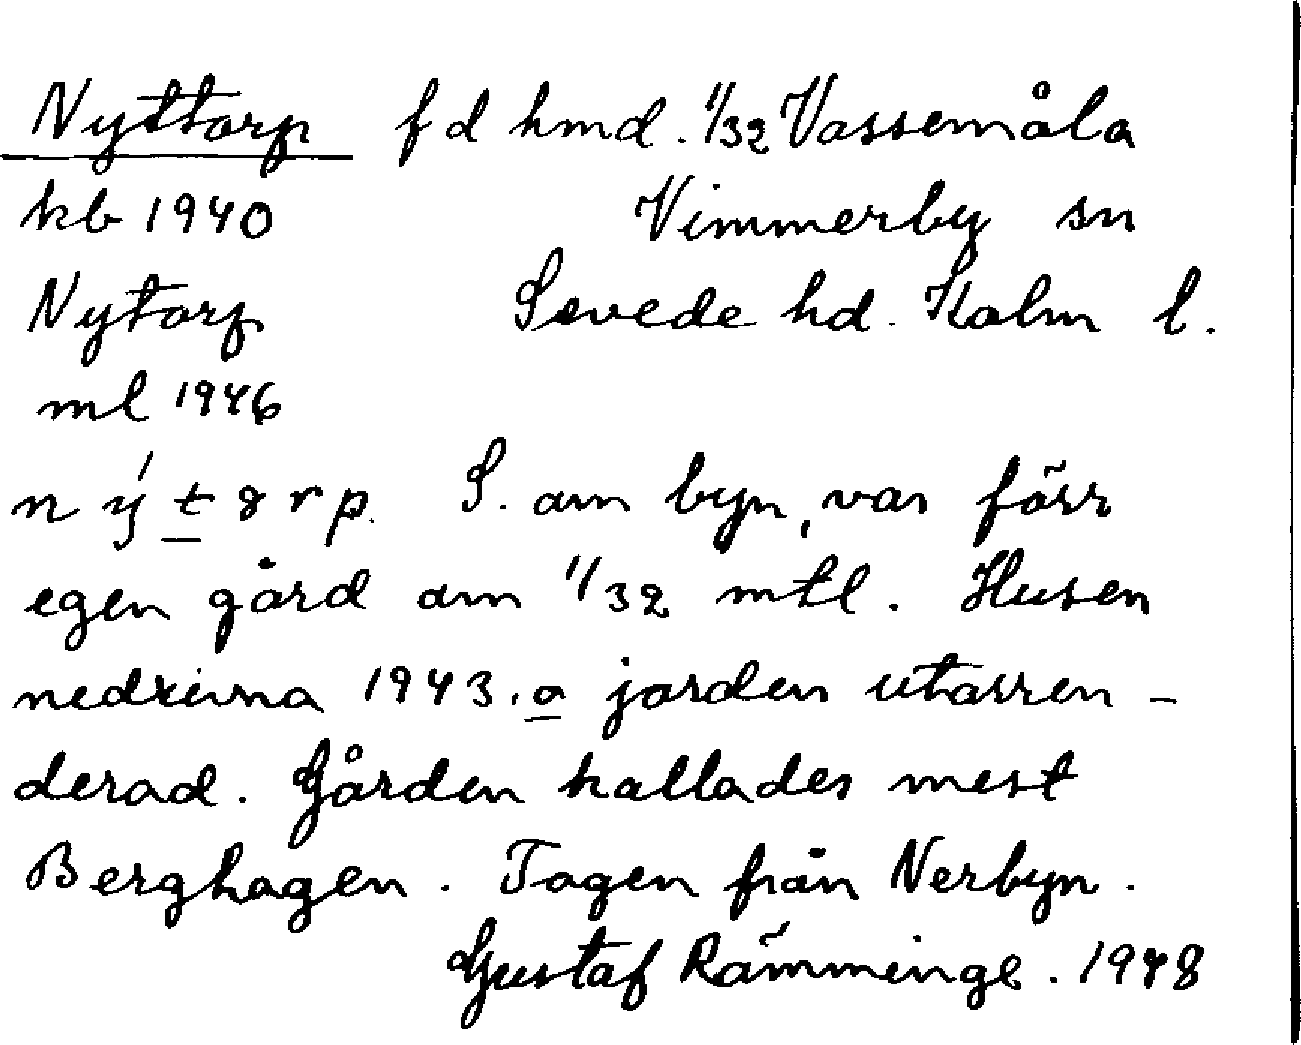 Nyttorp fd hmd. 1/32 Vassemåla
kb 1940 Vimmerby sn
Nytorp Sevede hd. Kalm l.
ml 1946
n ý t o r p. S. om byn, var förr
egen gård om 1/32 mtl. Husen
nedrivna 1943. o jorden utarren-
derad. Gården kallades mest
Berghagen. Tagen från Nerbyn.
Gustaf Rämminge. 1948